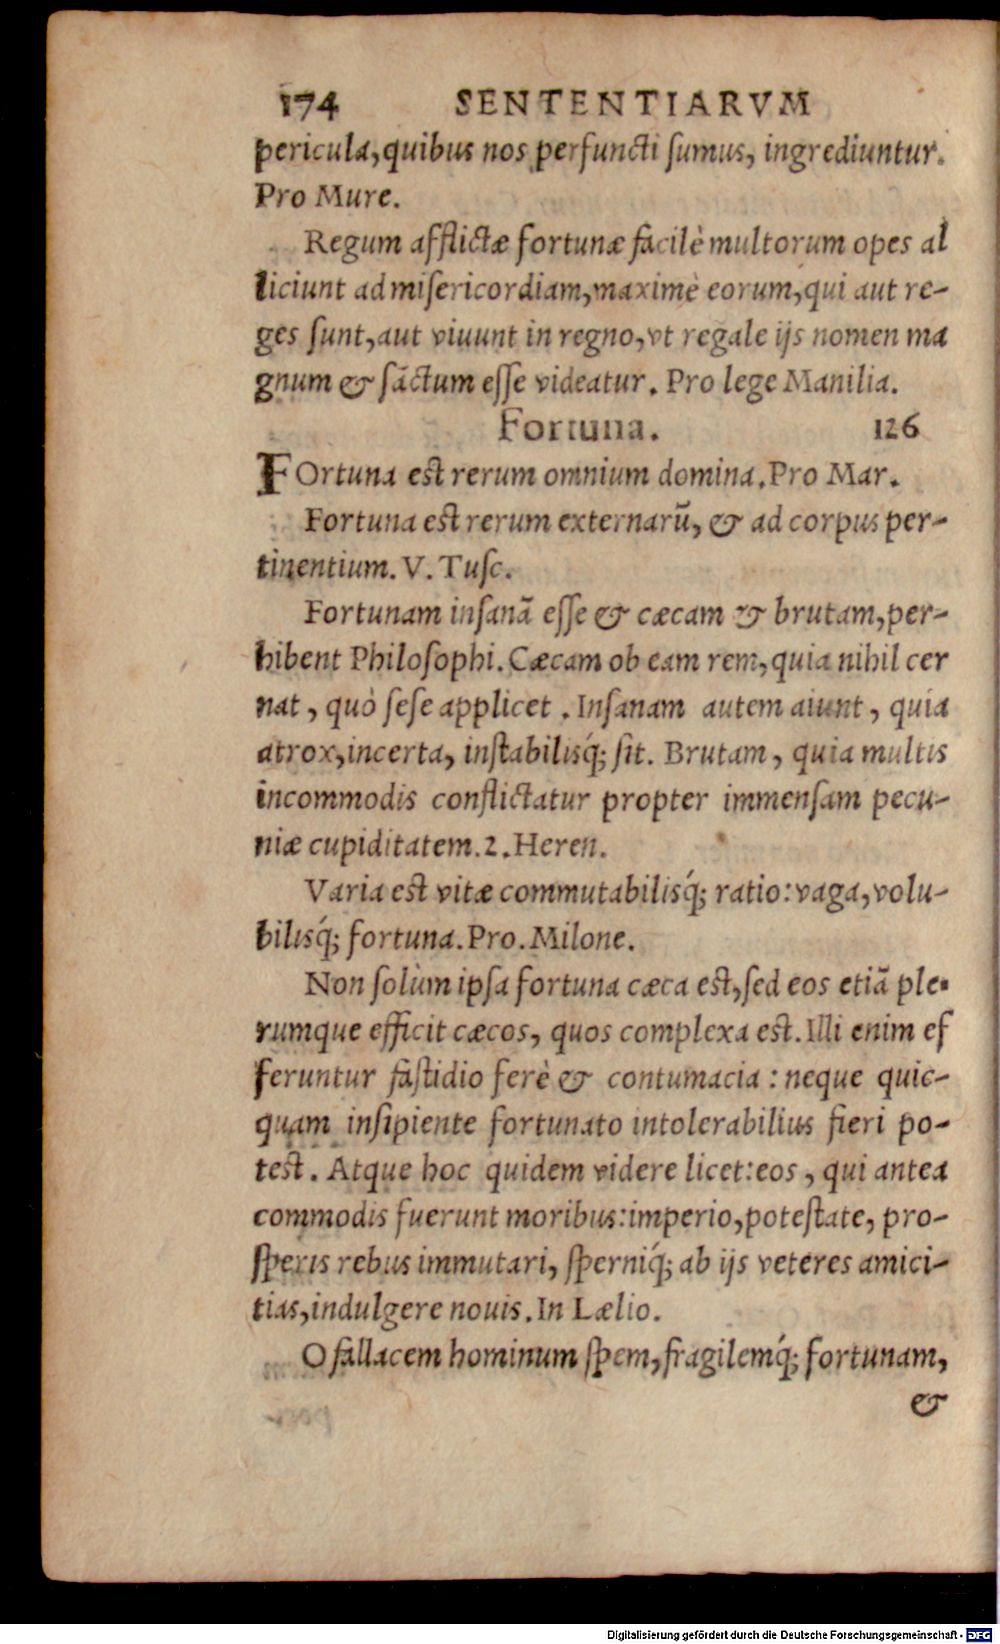 174 SENTENTIARVM
pericula, quibus nos perfuncti ſumus, ingrediuntur.
Pro Mure.
Regum afflictæ fortunæ facilè multorum opes al
liciunt ad miſericordiam, maximè eorum, qui aut re-
ges ſunt, aut viuunt in regno, vt regale ijs nomen ma
gnum & ſāctum eſſe videatur. Pro lege Manilia.
Fortuna. 126
FOrtuna est rerum omnium domina. Pro Mar.
Fortuna est rerum externarū, & ad corpus per-
tinentium. V. Tuſc.
Fortunam inſanā eſſe & cæcam & brutam, per-
hibent Philoſophi. Cæcam ob eam rem, quia nihil cer
nat, quò ſeſe applicet. Inſanam autem aiunt, quia
atrox, incerta, inſtabilisq́; ſit. Brutam, quia multis
incommodis conflictatur propter immenſam pecu-
niæ cupiditatem. 2. Heren.
Varia est vitæ commutabilisq́; ratio: vaga, volu-
bilisq́; fortuna. Pro. Milone.
Non ſolùm ipſa fortuna cæca est, ſed eos etiā ple-
rumque efficit cæcos, quos complexa est. Illi enim ef
feruntur faſtidio ferè & contumacia: neque quic-
quam inſipiente fortunato intolerabilius fieri po-
test. Atque hoc quidem videre licet: eos, qui antea
commodis fuerunt moribus: imperio, poteſtate, pro-
ſperis rebus immutari, ſperniq́; ab ijs veteres amici-
tias, indulgere nouis. In Lælio.
O fallacem hominum ſpem, fragilemq́; fortunam,
&
Digitalisierung gefördert durch die Deutsche Forschungsgemeinschaft - DFG